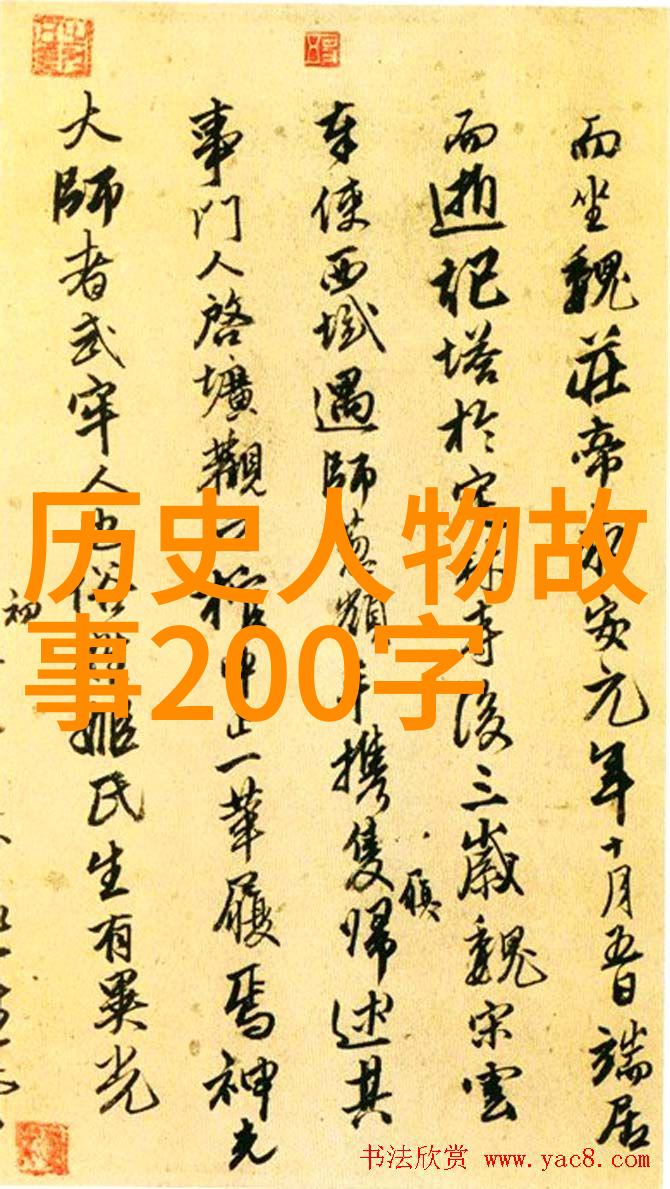 而坐魏莊帝永安元年十月五日端居
而逝記塔於定林寺後三歲魏宋雲
奉使西域遇師葱嶺手携隻歸述其
履
事門人啓壙觀棺中止一革履焉神光
大師者武牢人也俗姓姬氏生有異光
初
历史人物故
事200字
书法欣赏 www.yac8.com